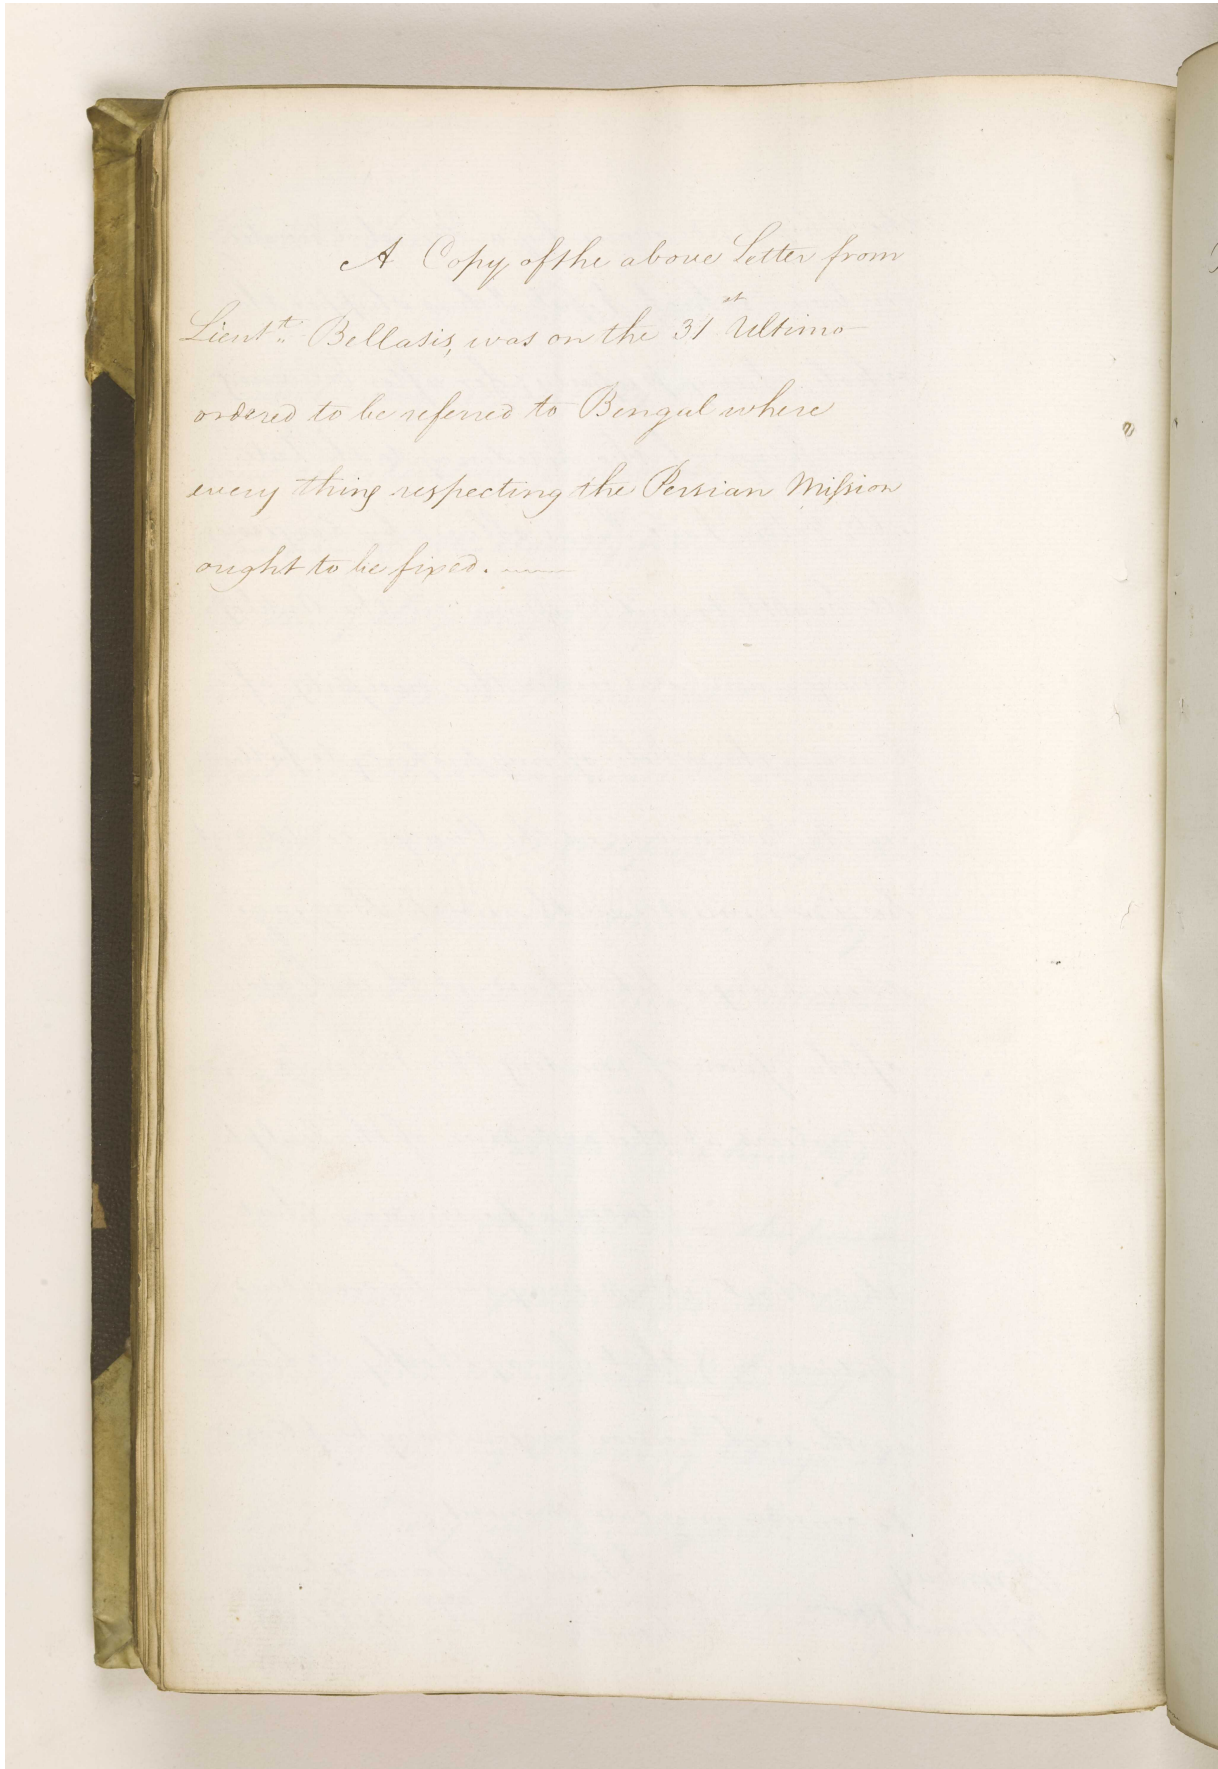 A Copy of the above Letter from
Lieutt. Bellasis, was on the 31st Ultimo
ordered to be referred to Bengal where
every thing respecting the Persian Mission
ought to be fixed.